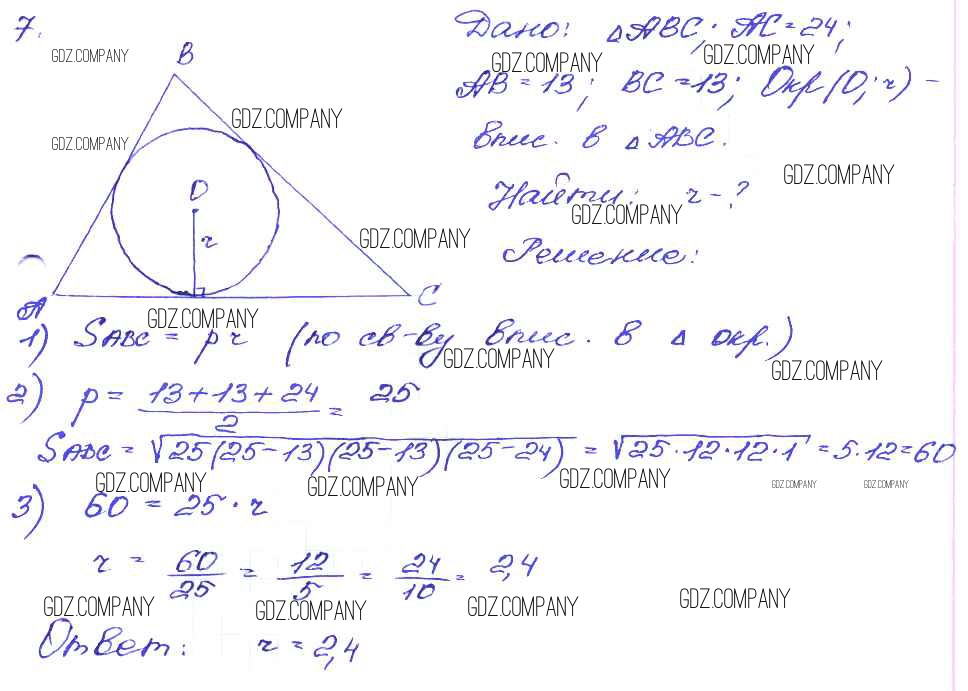 7.
GDZ.COMPANY
B
GDZ.COMPANY
GDZ.COMPANY
O
r
GDZ.COMPANY
A
C
GDZ.COMPANY
Дано: △ABC; AC = 24;
GDZ.COMPANY GDZ.COMPANY
AB = 13; BC = 13; Окр(O; r) –
впис. в △ABC.
GDZ.COMPANY
Найти: r – ?
GDZ.COMPANY
Решение:
1) SABC = pr (по св-ву впис. в △ окр.)
GDZ.COMPANY GDZ.COMPANY
2) p = (13 + 13 + 24)/2 = 25
SABC = √25(25 – 13)(25 – 13)(25 – 24) = √25·12·12·1 = 5·12 = 60
GDZ.COMPANY GDZ.COMPANY GDZ.COMPANY GDZ.COMPANY GDZ.COMPANY
3) 60 = 25 · r
r = 60/25 = 12/5 = 24/10 = 2,4
GDZ.COMPANY GDZ.COMPANY GDZ.COMPANY GDZ.COMPANY
Ответ: r = 2,4